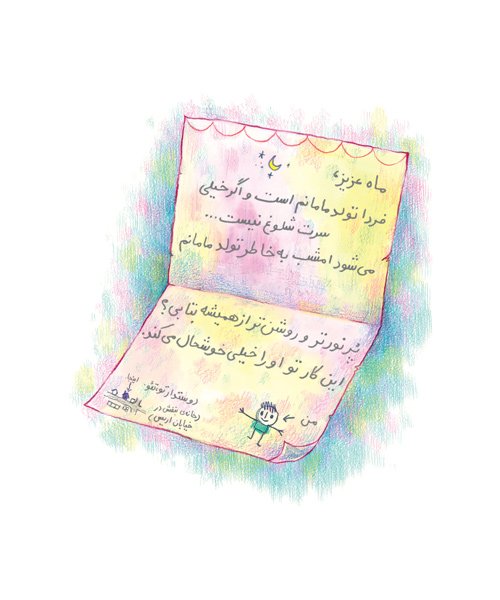 ماه عزیز،
فردا تولد مامانم است و اگر خیلی
سرت شلوغ نیست...
می‌شود امشب به خاطر تولد مامانم
پُر نورتر و روشن‌تر از همیشه بتابی؟
این کار تو او را خیلی خوشحال می‌کند.
من
اینجا
دوستدار تو،
خانه‌ی در
خیابان